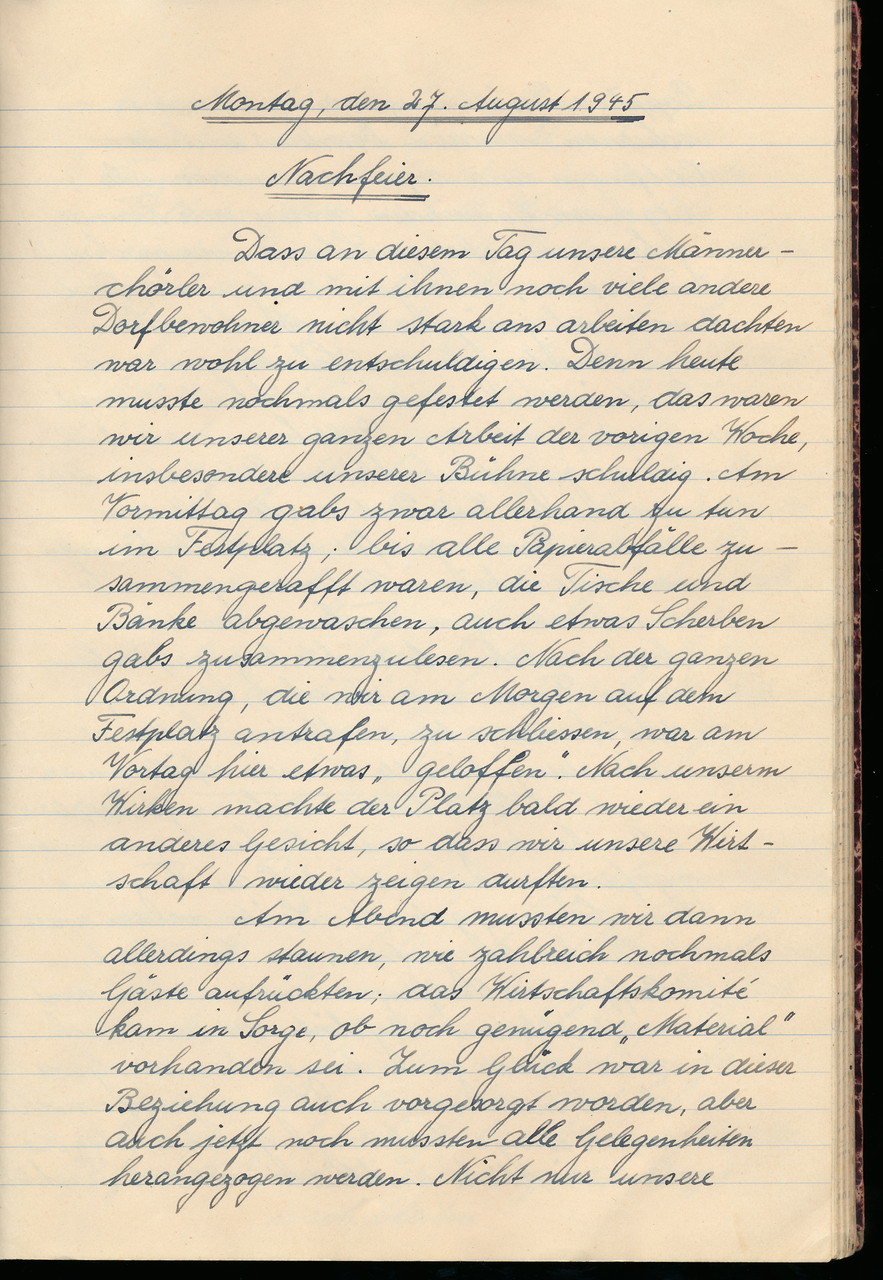 Montag, den 27. August 1945
Nachfeier.
Dass an diesem Tag unsere Männer-
chörler und mit ihnen noch viele andere
Dorfbewohner nicht stark ans arbeiten dachten
war wohl zu entschuldigen. Denn heute
musste nochmals gefestet werden, das waren
wir unserer ganzen Arbeit der vorigen Woche,
insbesondere unserer Bühne schuldig. Am
Vormittag gabs zwar allerhand zu tun
im Festplatz, bis alle Papierabfälle zu-
sammengerafft waren, die Tische und
Bänke abgewaschen, auch etwas Scherben
gabs zusammenzulesen. Nach der ganzen
Ordnung, die wir am Morgen auf dem
Festplatz antrafen, zu schliessen, war am
Vortag hier etwas „geloffen". Nach unserm
Wirken machte der Platz bald wieder ein
anderes Gesicht, so dass wir unsere Wirt-
schaft wieder zeigen durften.
Am Abend mussten wir dann
allerdings staunen, wie zahlreich nochmals
Gäste aufrückten; das Wirtschaftskomité
kam in Sorge, ob noch genügend „Material"
vorhanden sei. Zum Glück war in dieser
Beziehung auch vorgesorgt worden, aber
auch jetzt noch mussten alle Gelegenheiten
herangezogen werden. Nicht nur unsere